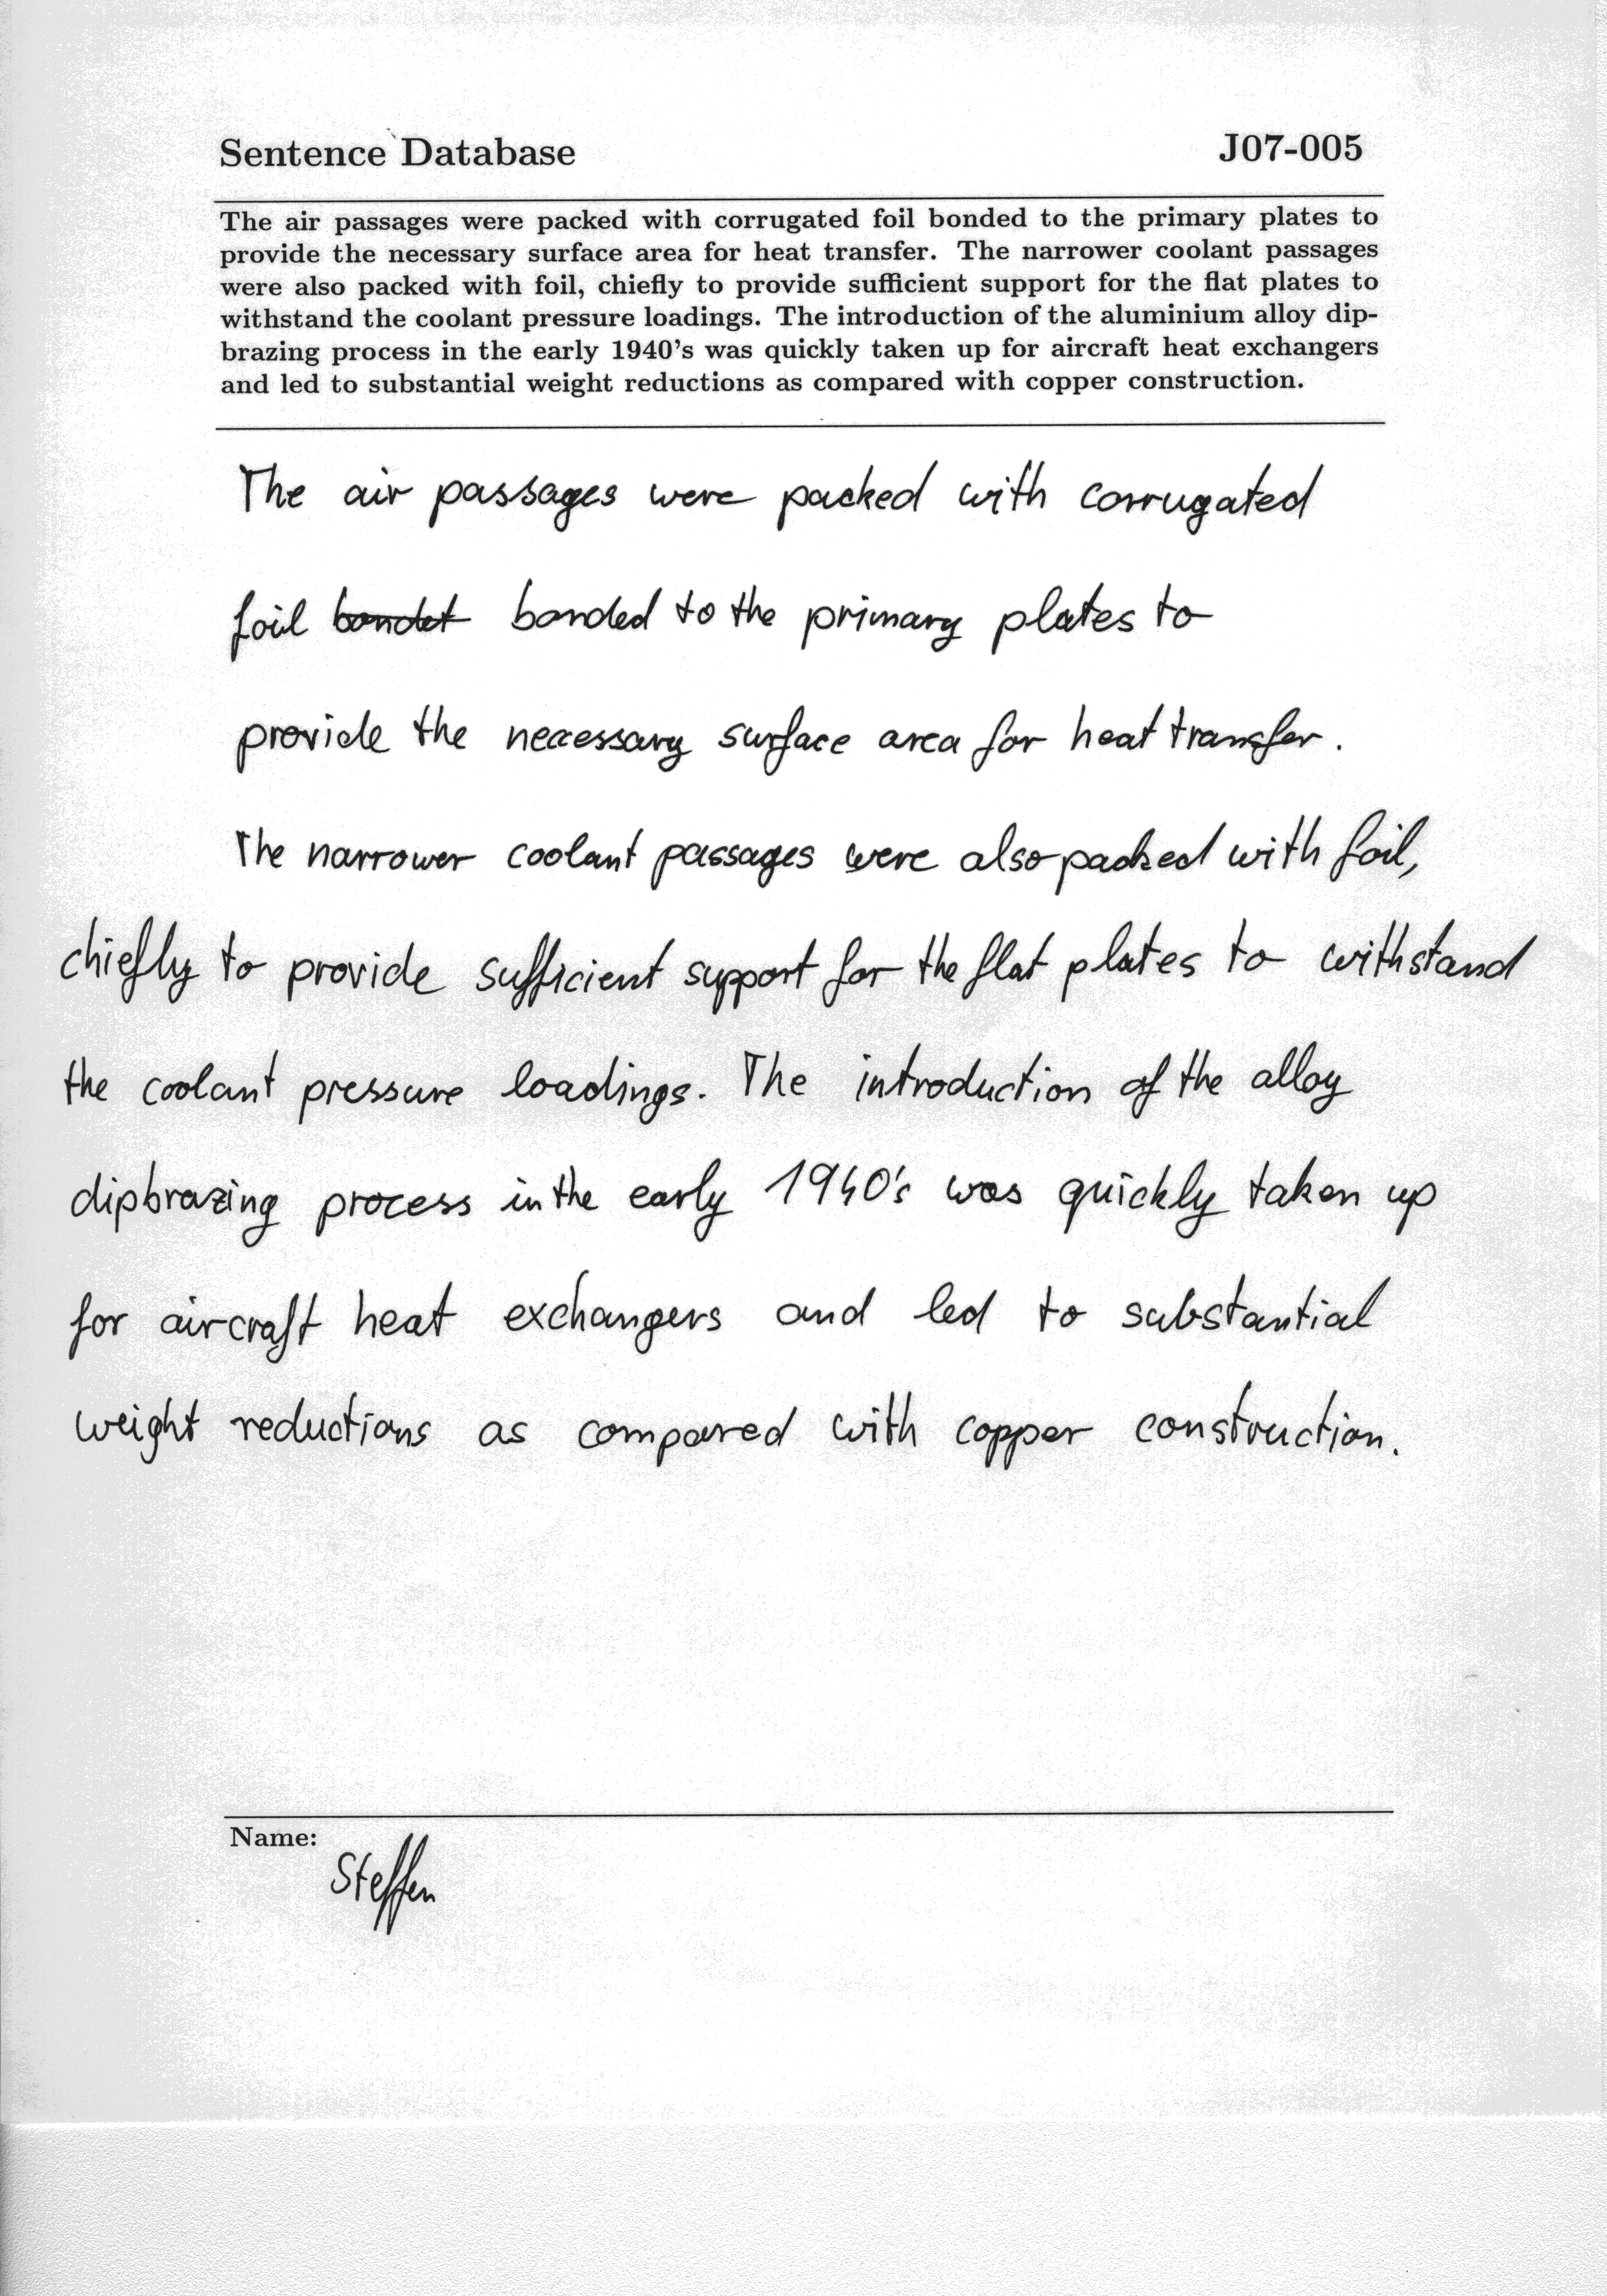 Sentence Database J07-005
The air passages were packed with corrugated foil bonded to the primary plates to
provide the necessary surface area for heat transfer. The narrower coolant passages
were also packed with foil, chiefly to provide sufficient support for the flat plates to
withstand the coolant pressure loadings. The introduction of the aluminium alloy dip-
brazing process in the early 1940's was quickly taken up for aircraft heat exchangers
and led to substantial weight reductions as compared with copper construction.
The air passages were packed with corrugated
foil bondet bonded to the primary plates to
provide the necessary surface area for heat transfer.
The narrower coolant passages were also packed with foil,
chiefly to provide sufficient support for the flat plates to withstand
the coolant pressure loadings. The introduction of the alloy
dipbrazing process in the early 1940's was quickly taken up
for aircraft heat exchangers and led to substantial
weight reductions as compared with copper construction.
Name:
Steffen